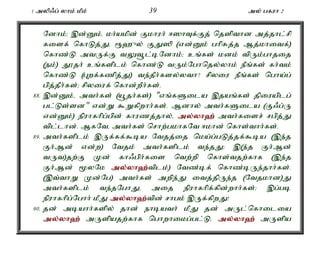 1 அலீஃப் லாம் மீம் 39 அல் பகரா 2
னோம்; இன்னும், மர்யமின் குமாரர் ஈஸாவுக்குத் தெளிவான அத்தாட்சி
களைக் கொடுத்து, ரூஹுல் குதுஸி (என்னும் பரிசுத்த ஆத்மாவைக்)
கொண்டு அவருக்கு வலுவூட்டினோம்; உங்கள் மனம் விரும்பாததை
(நம்) தூதர் உங்களிடம் கொண்டு வரும்போதெல்லாம் நீங்கள் கர்வம்
கொண்டு (புறக்கணித்து) வந்தீர்களல்லவா? சிலரை நீங்கள் பொய்ப்
பித்தீர்கள்; சிலரைக் கொன்றீர்கள்.
88. இன்னும், அவர்கள் (யூதர்கள்) "எங்களுடைய இதயங்கள் திரையிடப்
பட்டுள்ளன" என்று கூறுகிறார்கள். ஆனால் அவர்களுடைய (குஃப்ரு
என்னும்) நிராகரிப்பின் காரணத்தால், அல்லாஹ் அவர்களைச் சபித்து
விட்டான். ஆகவே, அவர்கள் சொற்பமாகவே ஈமான் கொள்வார்கள்.
89. அவர்களிடம் இருக்கக்கூடிய வேதத்தை மெய்ப்படுத்தக்கூடிய (இந்த
குர்ஆன் என்ற) வேதம் அவர்களிடம் வந்தது; இ(ந்த குர்ஆன்
வருவ)தற்கு முன் காஃபிர்களை வெற்றி கொள்வதற்காக (இந்த
குர்ஆன் மூலமே அல்லாஹ்விடம்) வேண்டிக் கொண்டிருந்தார்கள்.
(இவ்வாறு முன்பே) அவர்கள் அறிந்து வைத்திருந்த (வேதமான)து
அவர்களிடம் வந்தபோது, அதை நிராகரிக்கின்றார்கள்; இப்படி
நிராகரிப்போர் மீது அல்லாஹ்வின் சாபம் இருக்கிறது!
90. தன் அடியார்களில் தான் நாடியவர் மீது தன் அருட்கொடையை
அல்லாஹ் அருளியதற்காக பொறாமைப்பட்டு, அல்லாஹ் அருளிய